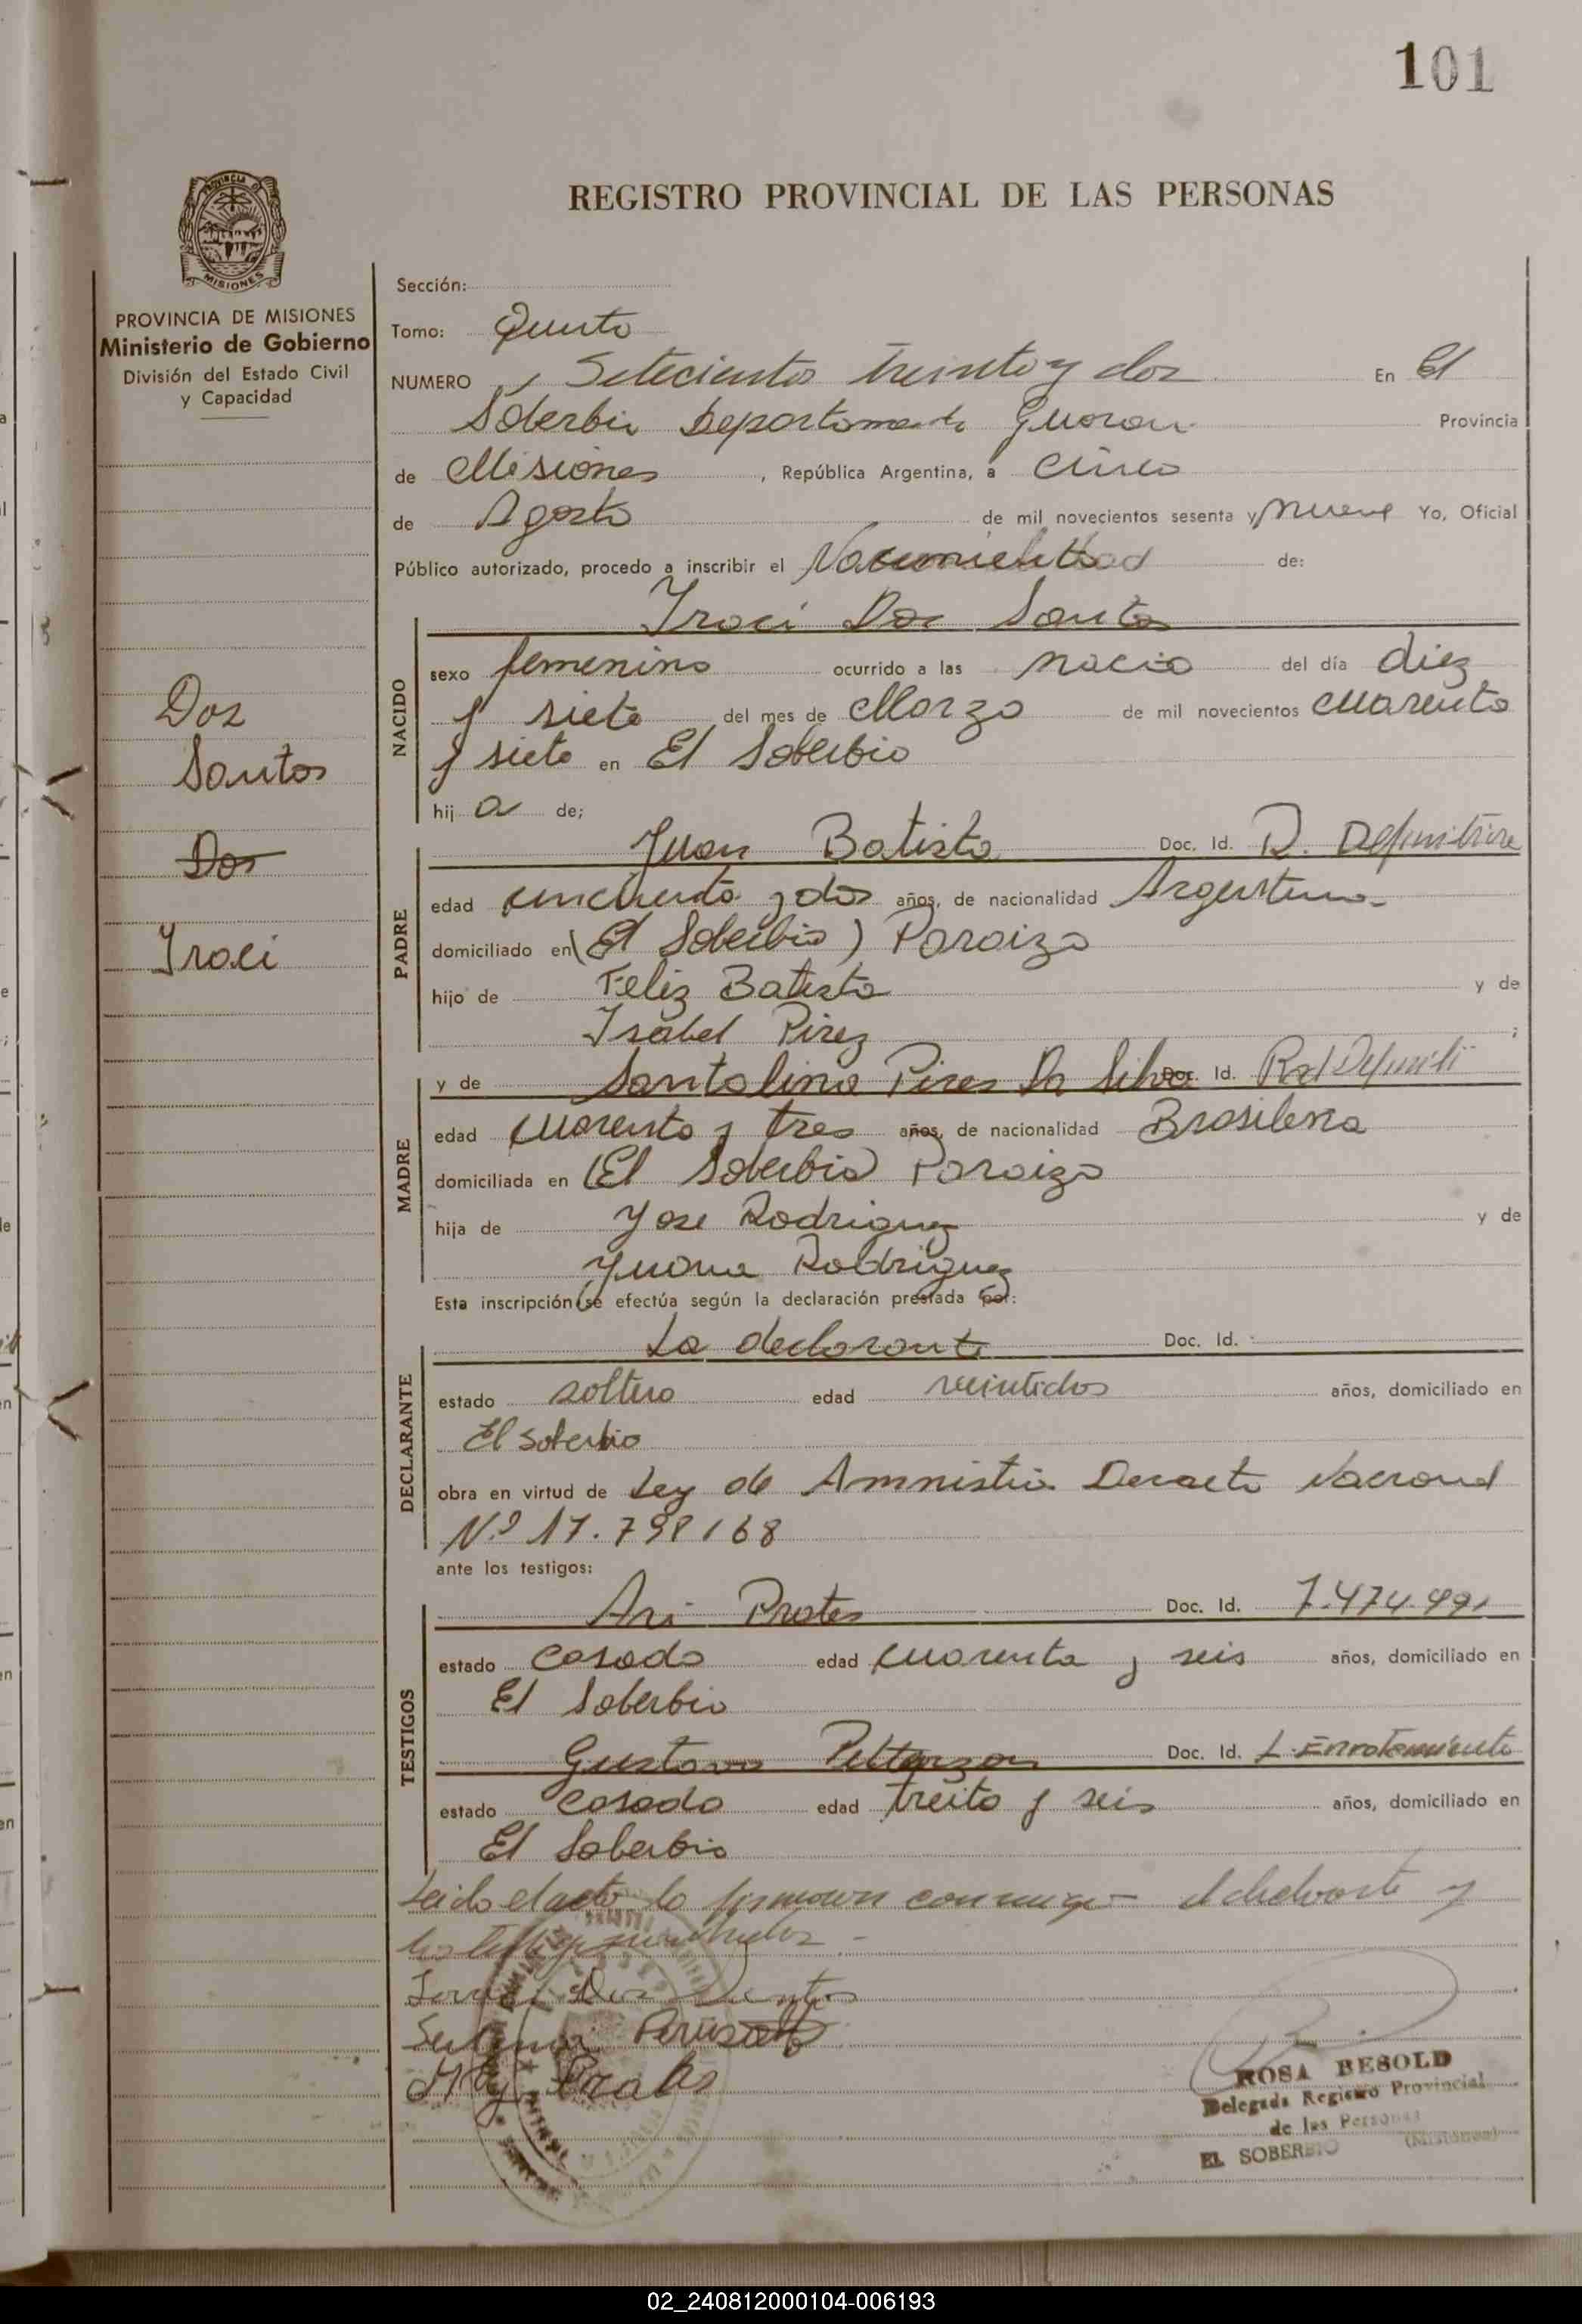 101
REGISTRO PROVINCIAL DE LAS PERSONAS
PROVINCIA DE MISIONES
Ministerio de Gobierno
División del Estado Civil
y Capacidad
Dos
Santos
Dos
Iraci
Sección:
Tomo: Quinto
NUMERO Setecientos treinta y dos En El
Soberbio Departamento Guarani Provincia
de Misiones, República Argentina, a Cinco
de Agosto de mil novecientos sesenta y nueve Yo, Oficial
Público autorizado, procedo a inscribir el Nacimiento de:
Iraci Dos Santos
NACIDO
sexo femenino ocurrido a las nacio del día diez
y siete del mes de Marzo de mil novecientos cuarenta
y siete en El Soberbio
hij a de;
PADRE
Juan Batista Doc. Id. R. Definitiva
edad cincuenta y dos años, de nacionalidad Argentina
domiciliado en (El Soberbio) Paraizo
hijo de Feliz Batista y de
Isabel Pirez ;
MADRE
y de Santalina Pires Da Silva Doc. Id. Rad Definiti
edad cuarenta y tres años, de nacionalidad Brasilena
domiciliada en (El Soberbio) Paraizo
hija de Jose Rodriguez y de
Juana Rodriguez
Esta inscripción se efectúa según la declaración prestada por:
DECLARANTE
La declarante Doc. Id.
estado soltera edad veintidos años, domiciliado en
El Soberbio
obra en virtud de Ley de Amnistia Decreto Nacional
N.º 17.798/68
ante los testigos:
TESTIGOS
Ari Prates Doc. Id. 7.474.991
estado Casado edad cuarenta y seis años, domiciliado en
El Soberbio
Gustavo Doc. Id. L. Enrolamiento
estado Casado edad treita y seis años, domiciliado en
El Soberbio
Leido el acto lo firman conmigo el declarante y
los testigos
Dos Santos
ROSA BESOLD
Delegada Registro Provincial
de las Personas
EL SOBERBIO (Misiones)
02_240812000104-006193